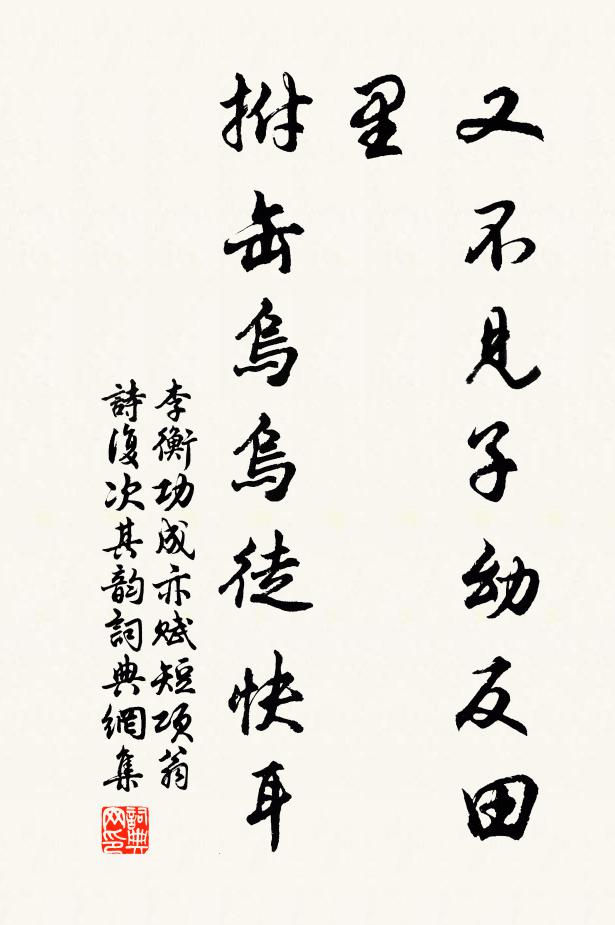 又不見子幼反田
里
拊缶烏烏徒快耳
李衡功成亦賦短項翁
詩復次其韵詞典網集
詞典网印